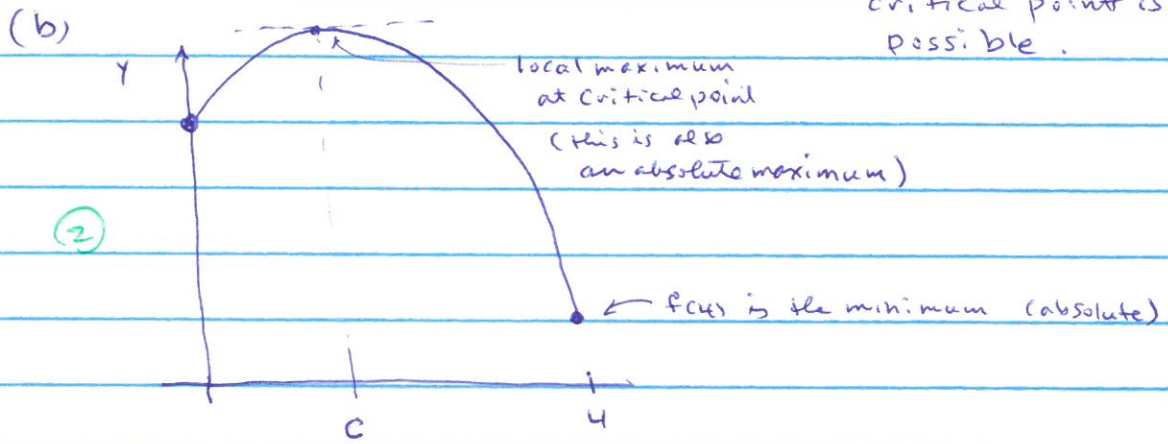 critical point is
possible.
(b)
Y
local maximum
at critical point
(this is also
an absolute maximum)
2
f(4) is the minimum (absolute)
C
4